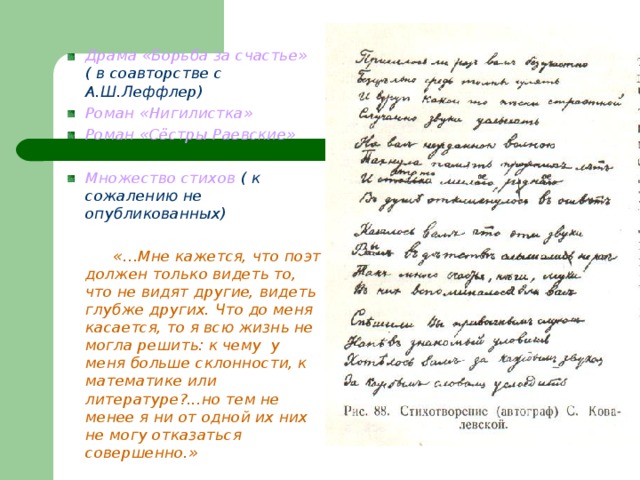 Драма «Борьба за счастье»
( в соавторстве с
А.Ш.Леффлер)
Роман «Нигилистка»
Роман «Сёстры Раевские»
Множество стихов ( к
сожалению не
опубликованных)
«…Мне кажется, что поэт
должен только видеть то,
что не видят другие, видеть
глубже других. Что до меня
касается, то я всю жизнь не
могла решить: к чему у
меня больше склонности, к
математике или
литературе?...но тем не
менее я ни от одной их них
не могу отказаться
совершенно.»
Пришлось ли разъ вамъ безучастно
Безцѣльно средь толпы гулять
И вдругъ какой то пѣсни страстной
Случайно звуки услыхать
На васъ нежданною волною
Пахнула память прежнихъ лѣтъ
И что то милое, родное
Въ душѣ откликнулось въ отвѣтъ
Казалось вамъ что эти звуки
Вы въ дѣтствѣ слышали не разъ
Такъ много счастья, нѣги, муки
Въ нихъ вспоминалося для васъ
Спѣшили Вы привычнымъ слухомъ
Напѣвъ знакомый уловить
Хотѣлось вамъ за каждымъ звукомъ
За каждымъ словомъ услѣдить
Рис. 88. Стихотворение (автограф) С. Кова-
левской.